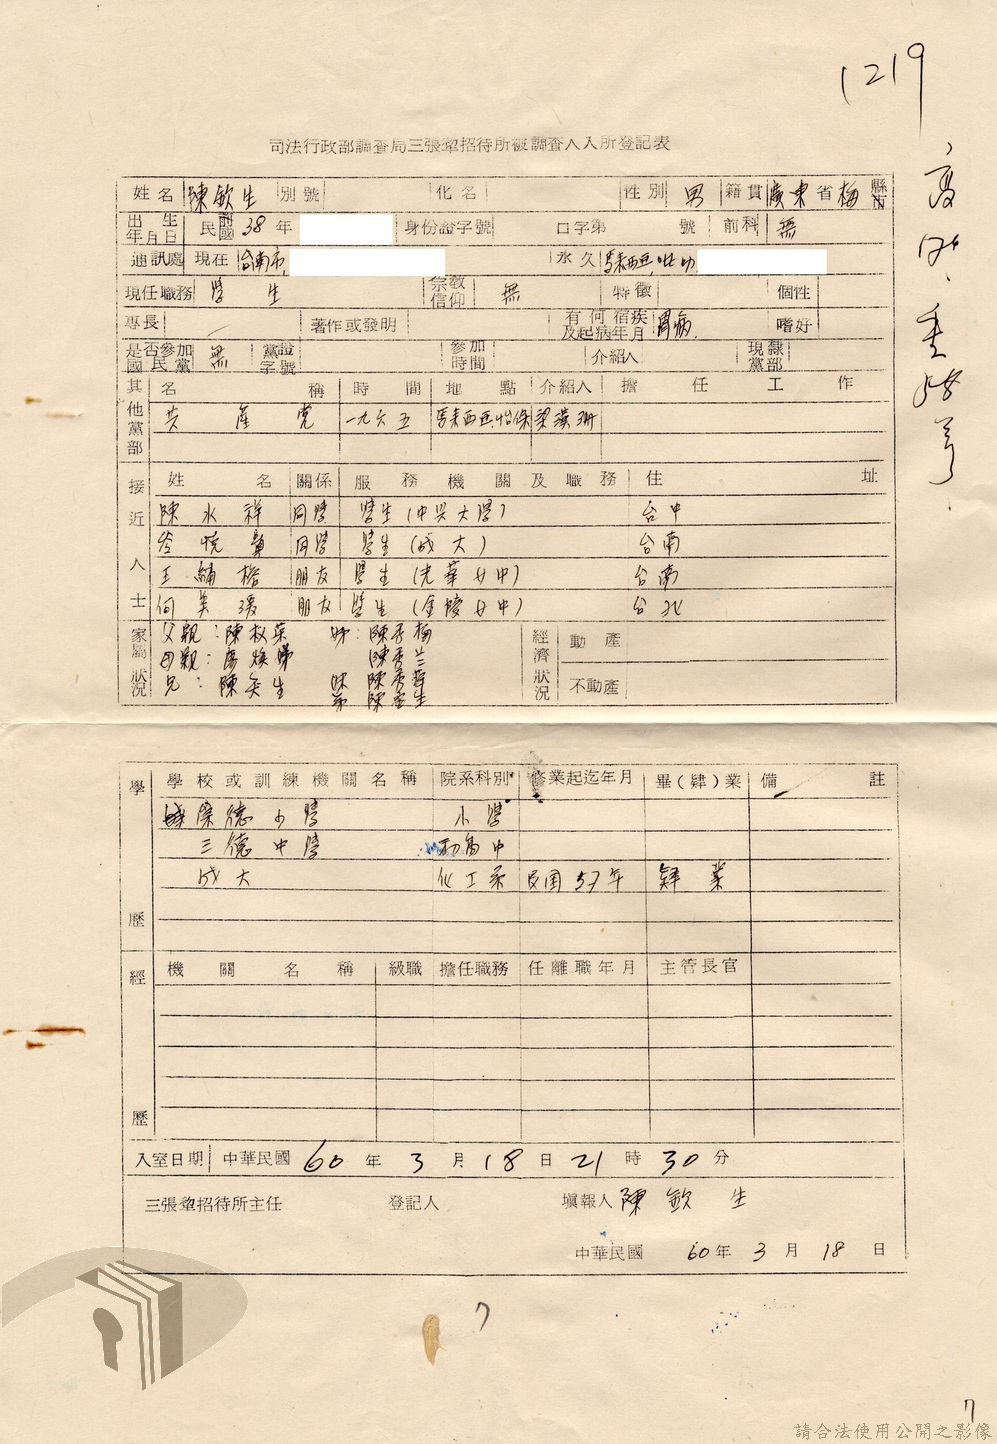 1219
司法行政部調查局三張犂招待所被調查人入所登記表
姓名 陳欽生 別號 化名 性別 男 籍貫 廣東省梅縣市
出生年月日 民國前 38年 身份證字號 口字第 號 前科 無
通訊處 現在 台南市 永久 馬來西亞
現任職務 學生 宗教信仰 無 特徵 個性
專長 著作或發明 有何宿疾及起病年月 胃病 嗜好
是否參加國民黨 無 黨證字號 參加時間 介紹人 現隸黨部
其他黨部 名稱 時間 地點 介紹人 擔任工作
共產党 一九六五 馬來西亞怡保 梁漢珊
接近人士 姓名 關係 服務機關及職務 住址
陳水祥 同學 學生(中兴大學) 台中
同學 學生(成大) 台南
王 朋友 學生(光華女中) 台南
何 朋友 學生(金陵女中) 台北
家屬狀況 父親:陳 姊:陳秀梅 經濟狀況 動產
母親: 陳秀兰
兄:陳 生 妹 陳秀 不動產
弟 陳 生
學歷 學校或訓練機關名稱 院系科別 修業起迄年月 畢(肄)業 備註
崇德小學 小學
三德中學 初高中
成大 化工系 民国57年 肄業
經歷 機關名稱 級職 擔任職務 任離職年月 主管長官
入室日期 中華民國60年3月18日21時30分
三張犂招待所主任 登記人 填報人 陳欽生
中華民國 60年3月18日
7
7
請合法使用公開之影像